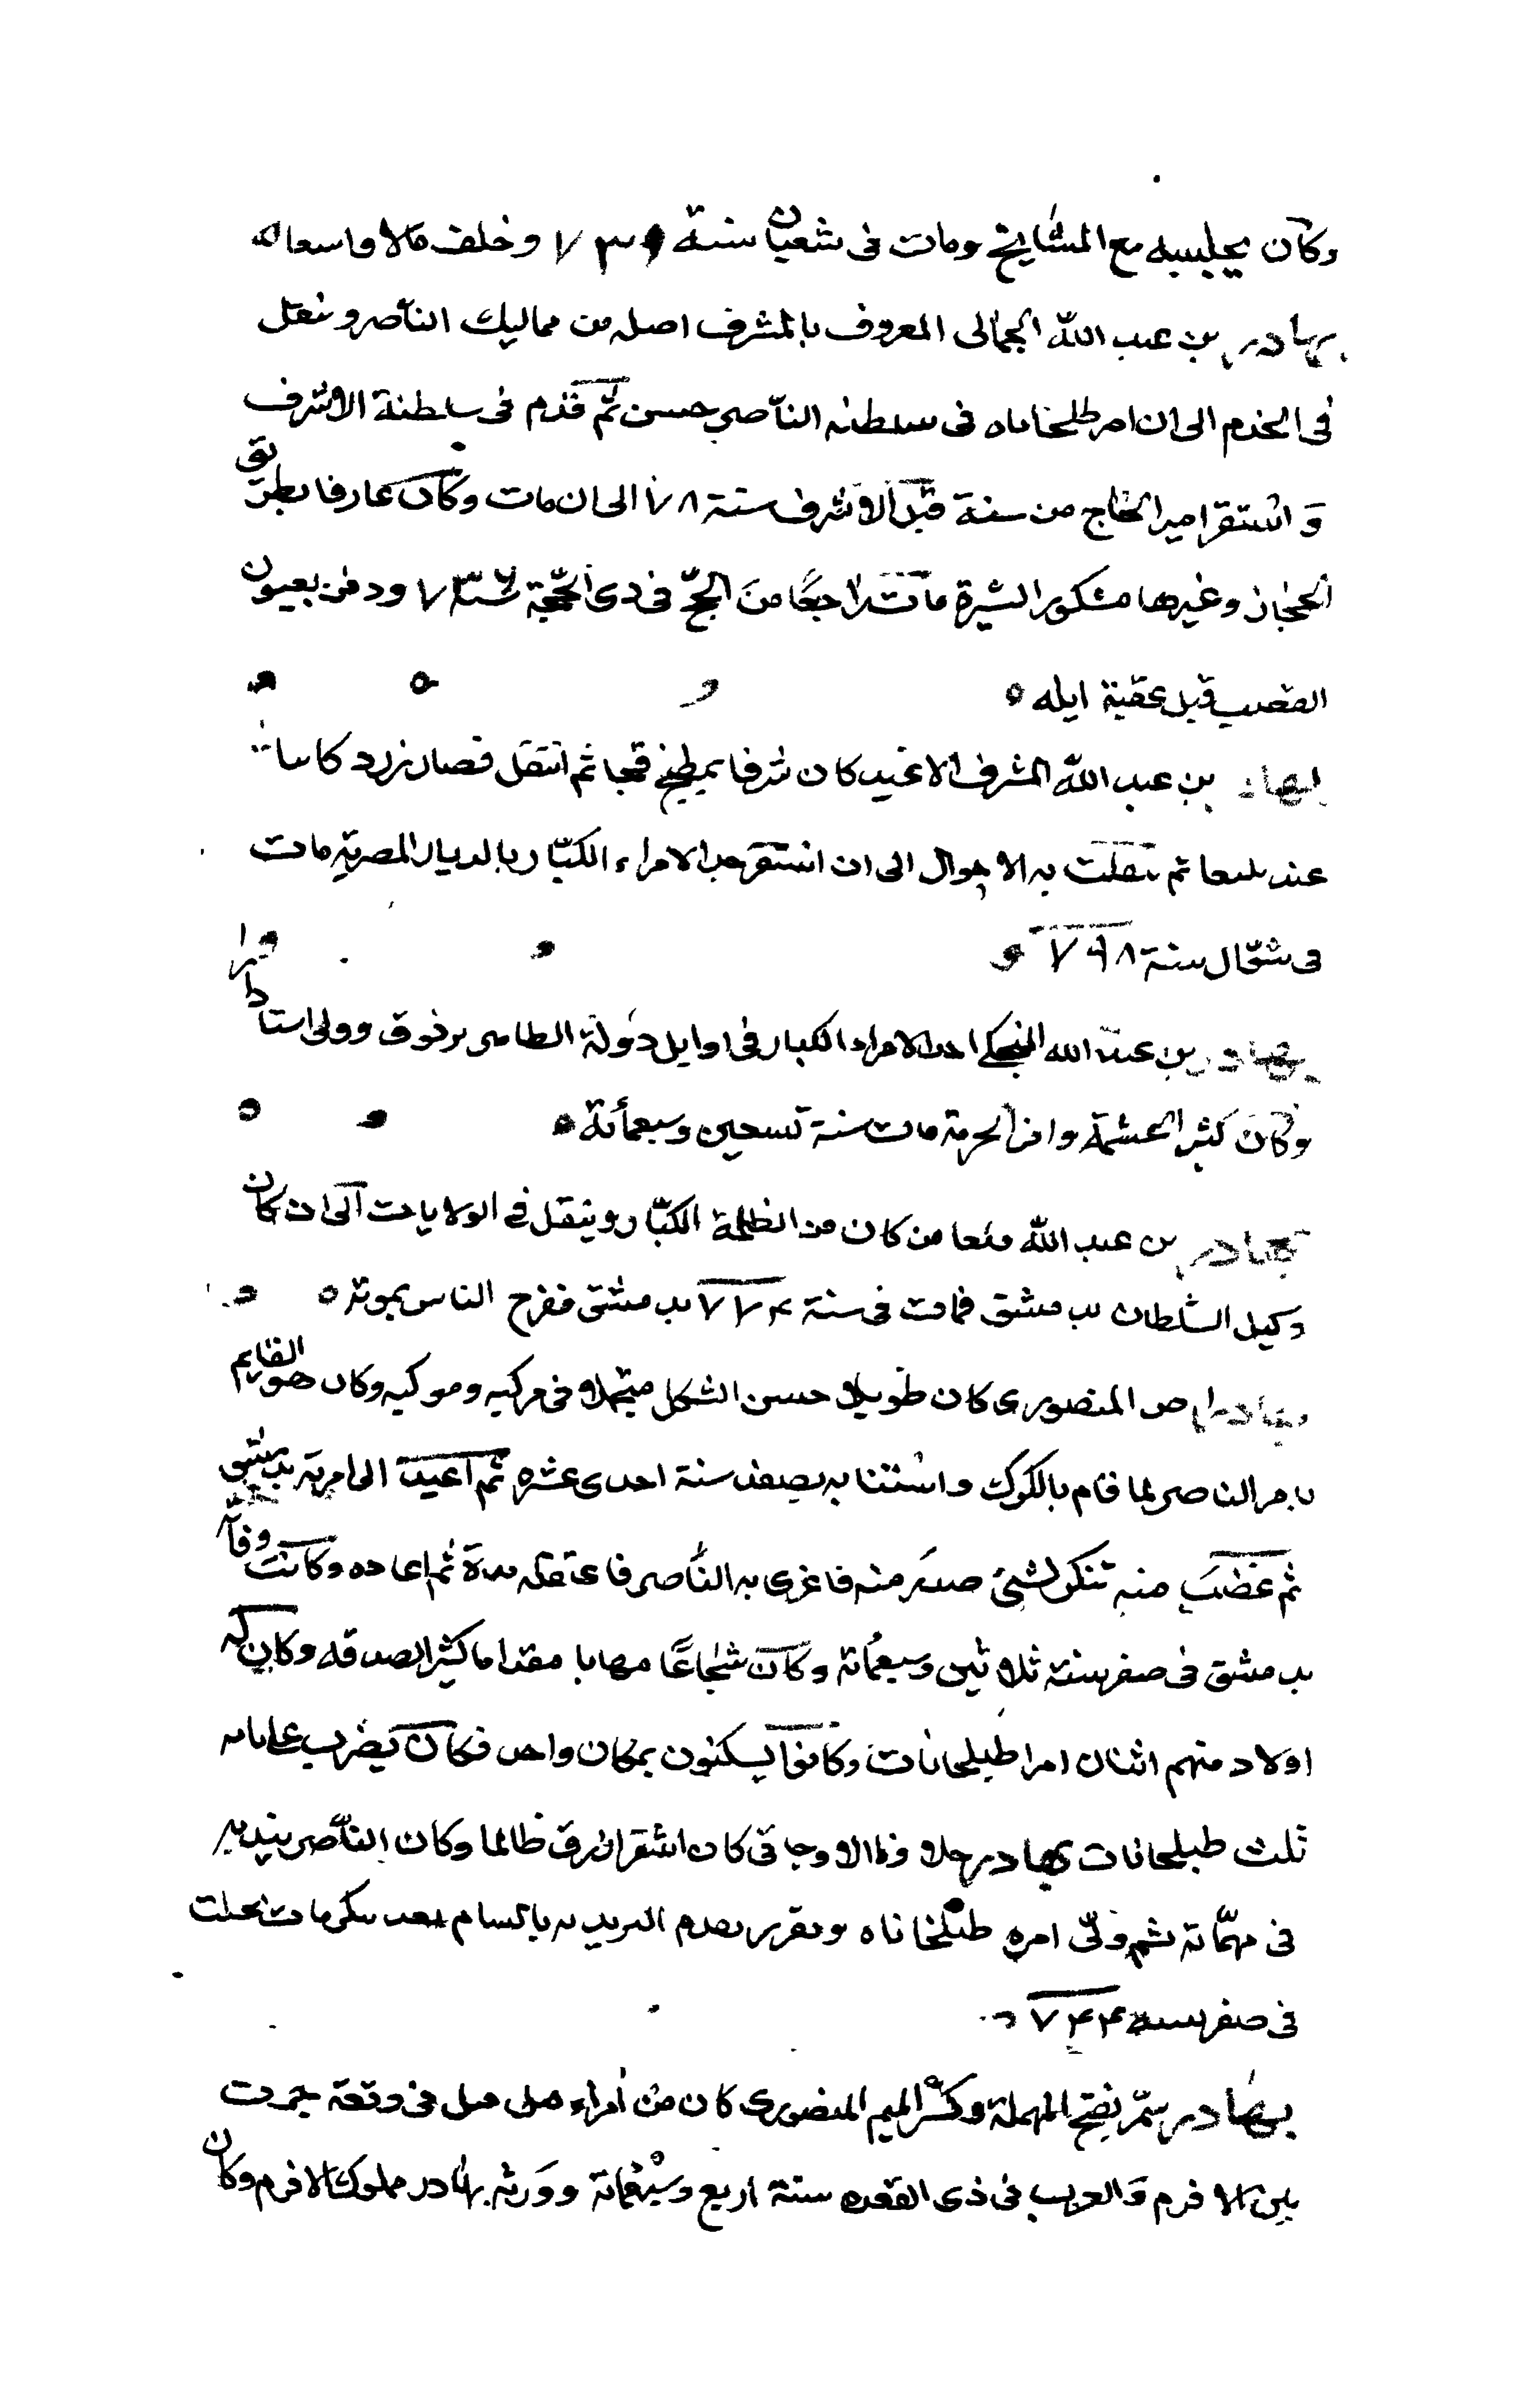 وكان يجلسه مع المشايخ ومات فى شعبان سنة ٧٣٩ وخلف مالا واسعا
بهادر بن عبد الله الجمالى المعروف بالمشرف اصله من مماليك الناصر وتنقل
فى الخدم الى ان امر طبلخاناه فى سلطنه الناصر حسن ثم قدم فى سلطنة الاشرف
واستقر امير الحاج من سنة قبل الاشرف سنة ٧٨ الى ان مات وكان عارفا بطريق
الحجاز وغيرها مشكور السيرة مات راجعا من الحج فى ذى الحجة سنة ودفن بعيون
القصب قبل عقبة ايله
بهادر بن عبد الله المشرف الاعيد كان مشرفا بمطبخ قجا ثم انتقل فصار زرد كاشا
عند يلبغا ثم تنقلت به الاحوال الى ان استقر احد الامراء الكبار بالديار المصريه مات
فى شوال سنة ٧٩٨
بهادر بن عبد الله المنجكى احد الامراء الكبار فى اوايل دولة الظاهر برقوق وولى استادارا
وكان كثير الحشمة وافر الحرمة مات سنة تسعين وسبعمائة
بهادر بن عبد الله كان من الظلمة الكبار وتنقل فى الولايات الى ان كان
وكيل السلطان بدمشق فمات فى سنة ٧٧٤ بدمشق ففرح الناس بموته
بهادر اص المنصورى كان طويلا حسن الشكل متجملا فى مركبه وموكبه وكان هو القايم
بامر الناصر لما قام بالكرك واستنابه بصفد سنة احدى عشره ثم اعيد الى امريته بدمشق
ثم غضب منه تنكز لشئ صدر منه فاغرى به الناصر فاعتقله مدة ثم اعاده وكانت وفاته
بدمشق فى صفر سنة ثلاثين وسبعمائة وكان شجاعا مهابا مقداما كثير الصدقه وكان له
اولاد منهم اثنان امرا طبلحانات وكانوا يسكنون بمكان واحد فكان يضرب على بابه
ثلث طبلحانات بهادر حلاوة الاوجاقى كان اشقر ازرق ظالما وكان الناصر يندبه
فى مهماته ثم ولى امره طبلخاناه وتقرير مقدم البريديه بالشام بعد تنكز مات بحلب
فى صفر سنة ٧٤٤
بهادر سمز بفتح المهملة وكسر الميم المنصورى كان من امراء قتل فى وقعة جرت
بين الافرم والعرب فى ذى القعده سنة اربع وسبعمائة وورثه بهادر مملوك الافرم وكان